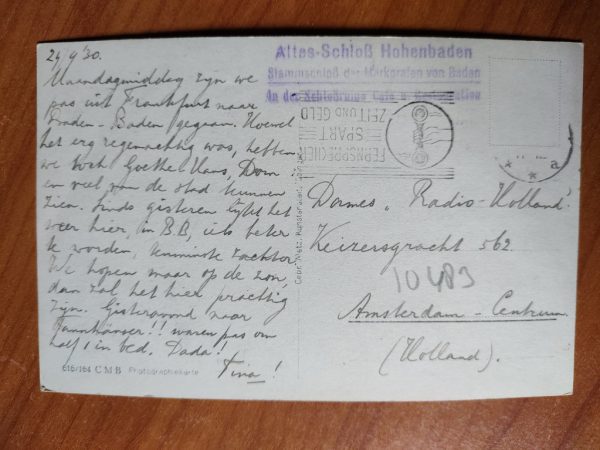 24/9 '30.
Maandagmiddag zijn we
pas uit Frankfurt naar
Baden-Baden gegaan. Hoewel
het erg regenachtig was, hebben
we toch Goethe Haus, Dom
en veel van de stad kunnen
zien. Sinds gisteren lijkt het
weer hier, in B.B, iets beter
te worden, tenminste zachter.
We hopen maar op de zon,
dan zal het hier prachtig
zijn. Gisteravond naar
Tannhäuser!! waren pas om
half 1 in bed. Dada!
Tina!
616/164 CMB Photographiekarte
Gebr. Metz, Kunstanstalt,
Altes-Schloß Hohenbaden
Stammschloß der Markgrafen von Baden
An der Schloßruine Café u. Restauration
FERNSPRECHER
SPART
ZEIT UND GELD
Dames „Radio-Holland"
Keizersgracht 562.
10483
Amsterdam-Centrum
(Holland).